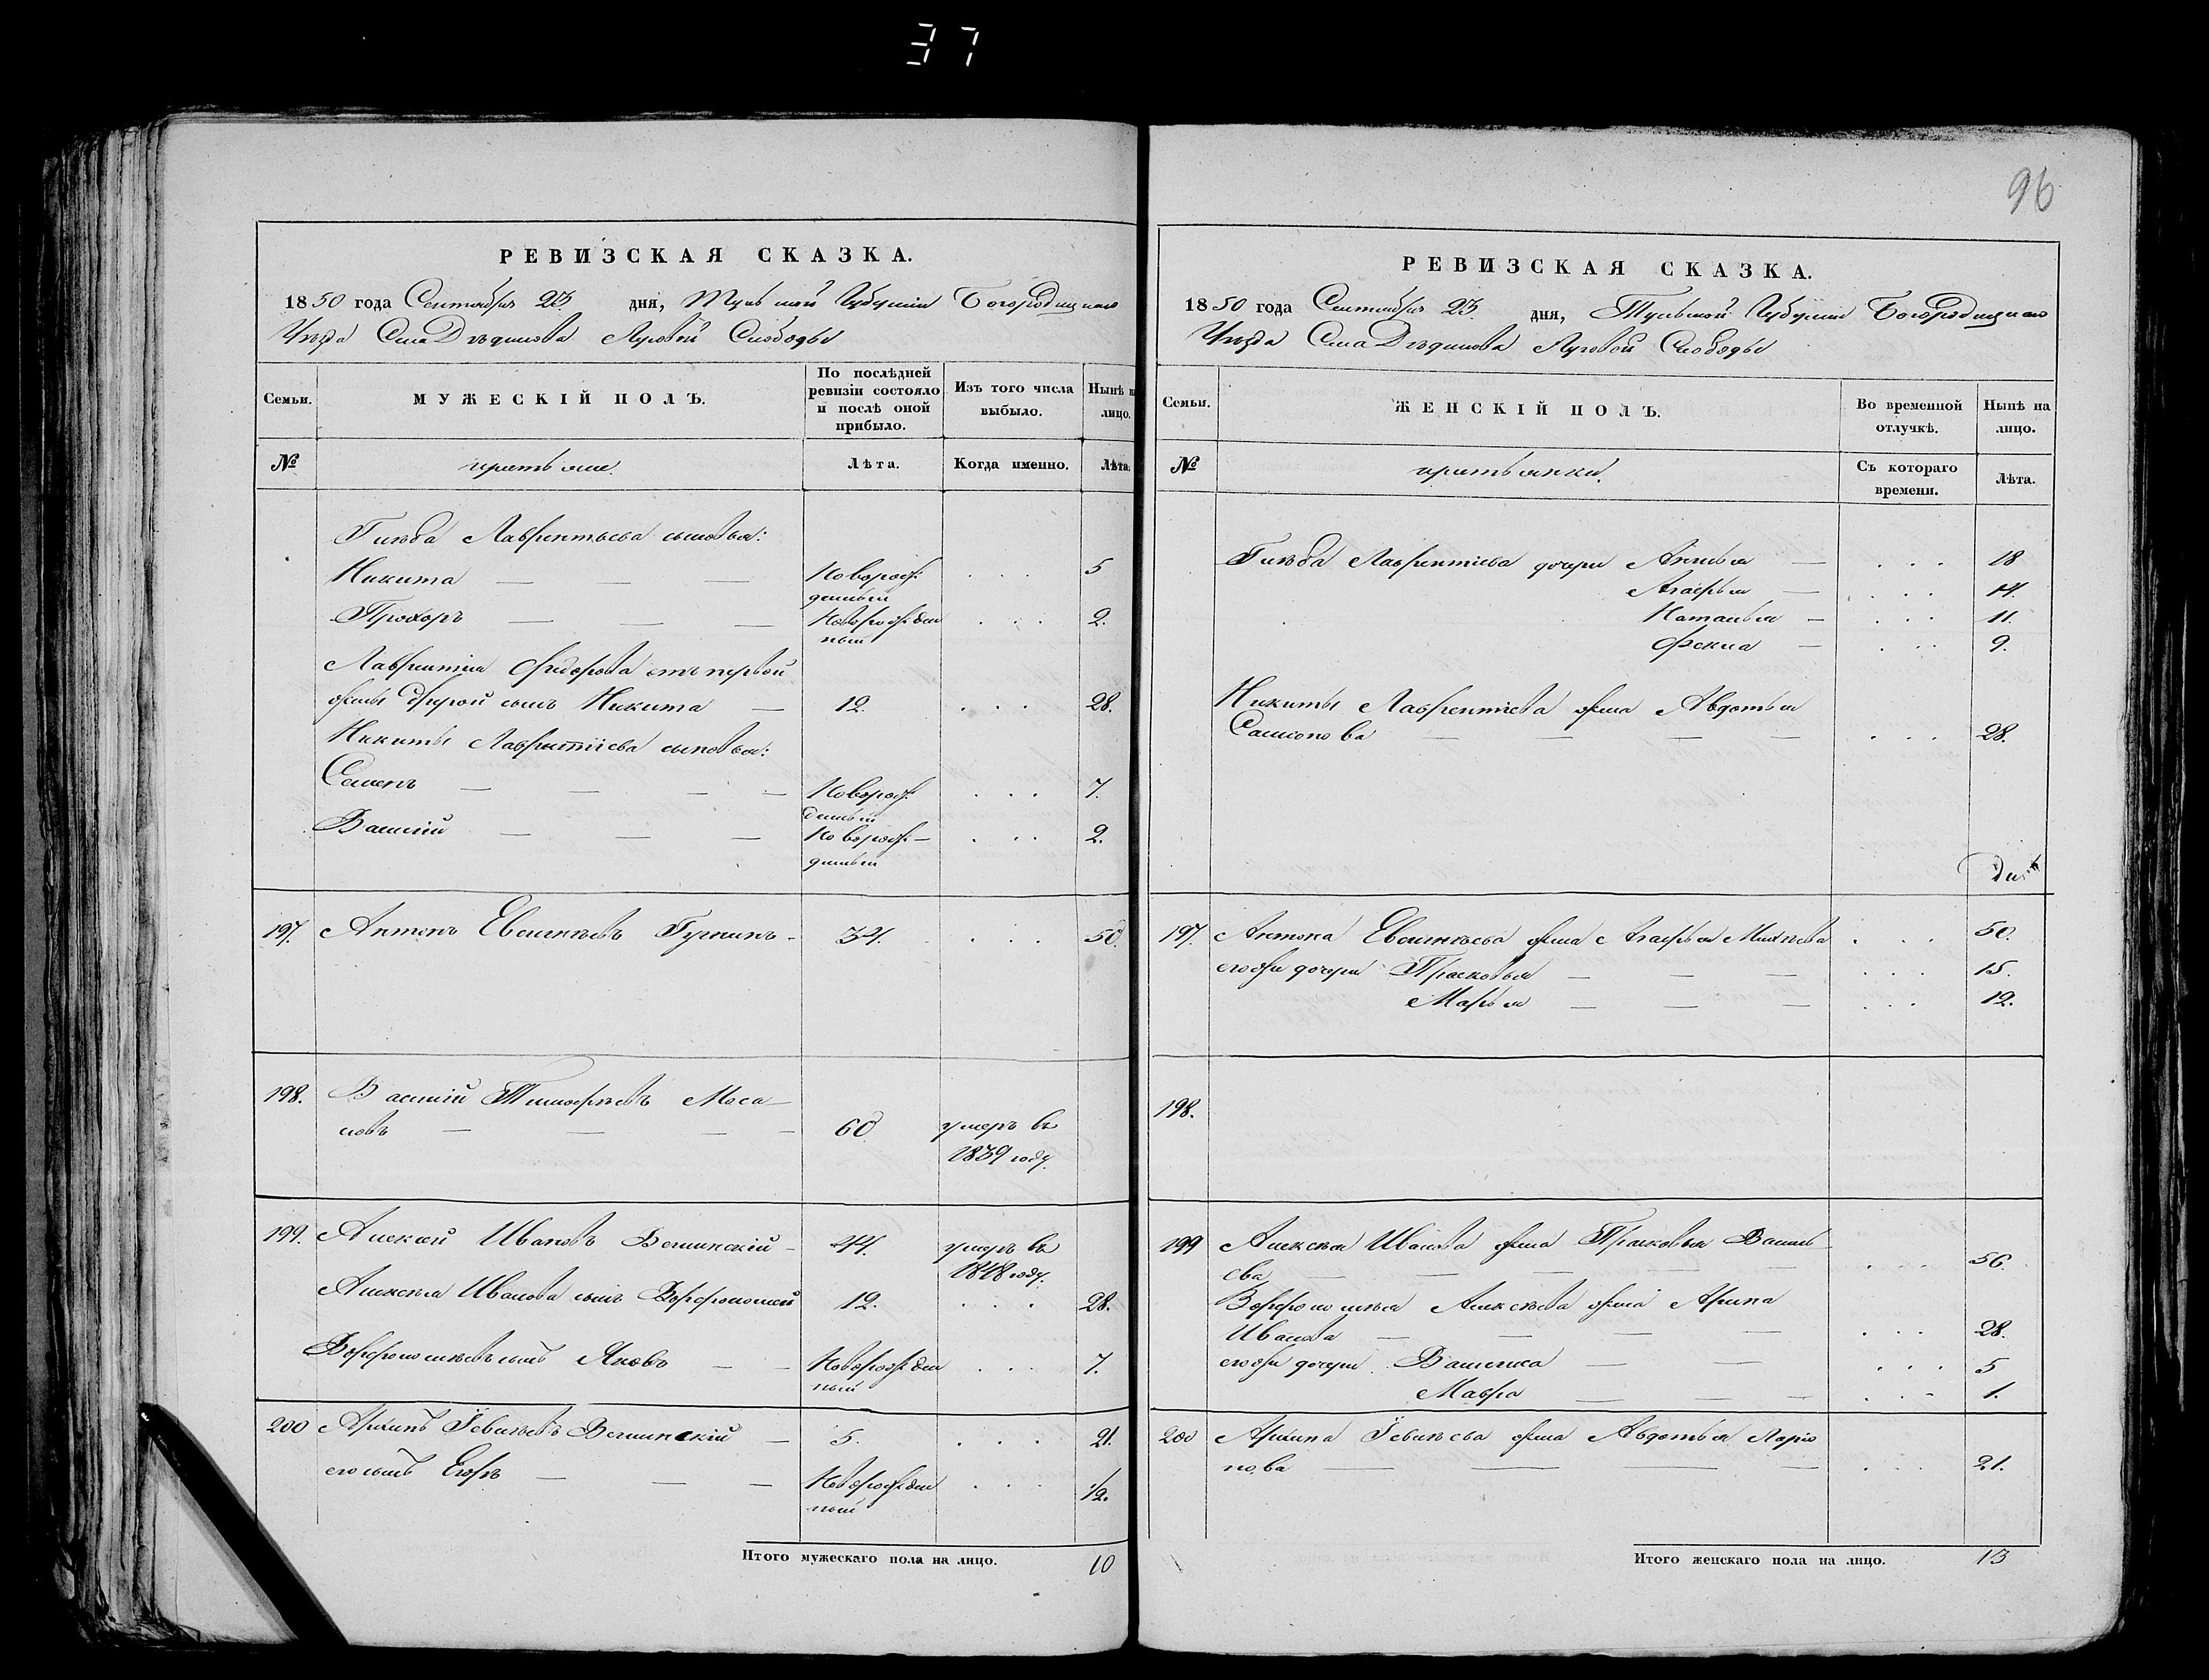 37
96
РЕВИЗСКАЯ СКАЗКА.
1850 года Сентября 23 дня, Тульской Губернии Богородицкаго
Уѣзда Села Дѣдилова Луговой Слободы
Семьи. МУЖЕСКІЙ ПОЛЪ. По послѣдней ревизіи состояло и послѣ оной прибыло. Изъ того числа выбыло. Нынѣ на лицо.
№ Лѣта. Когда именно. Лѣта.
Лаврентьева сыновья:
Никита — — — Новорож: . . . 5
денный
Прохоръ — — — Новорожден . . . 2.
ный
Лаврентія Федорова отъ первой
жены другой сынъ Никита — 12. . . . 28.
Никиты Лаврентіева сыновья:
Семенъ — — — — Новорож: . . . 7.
денный
Василій — — — Новорож— . . . 2.
денный
197. Антонъ Евсигнѣевъ 34. . . . 50.
198. Василій Тимофѣевъ Моса—
ловъ — — — — 60 умеръ въ
1839 году.
199. Алексей Ивановъ 44. умеръ въ
1848 году.
Алексѣя Иванова сынъ Ворфоломей 12. . . . 28.
Ворфоломѣевъ сынъ Яковъ — — Новорожден . . . 7.
ный
200 Архипъ Іевлевъ — 5. . . . 21.
его сынъ Егоръ — — — Новорожден . . . 1/2.
ный
Итого мужескаго пола на лицо. 10
РЕВИЗСКАЯ СКАЗКА.
1850 года Сентября 23. дня, Тульской Губерніи Богородицкаго
Уѣзда Села Дѣдилова Луговой Слободы
Семьи. ЖЕНСКІЙ ПОЛЪ. Во временной отлучкѣ. Нынѣ на лицо.
№ Съ котораго времени. Лѣта.
Лаврентіева дочери — . . . 18
Агафья — . . . 14.
Наталья — . . . 11.
Фекла — . . . 9.
Никиты Лаврентіева жена Авдотья
— — — — . . . 28.
197. Антона Евсигнѣева жена Агафья . . . 50.
его же дочери Прасковья — — — . . . 15.
Марья — — — . . . 12.
198.
199 Алексѣя Иванова жена Прасковья Василь
ева — — — — — . . . 56.
Ворфоломѣя Алексѣева жена Арина
Иванова — — — — . . . 28.
его же дочери Василиса — — . . . 5
Мавра — — — . . . 1.
200 Архипа Іевлева жена Авдотья Ларіо
нова — — — — . . . 21.
Итого женскаго пола на лицо. 13